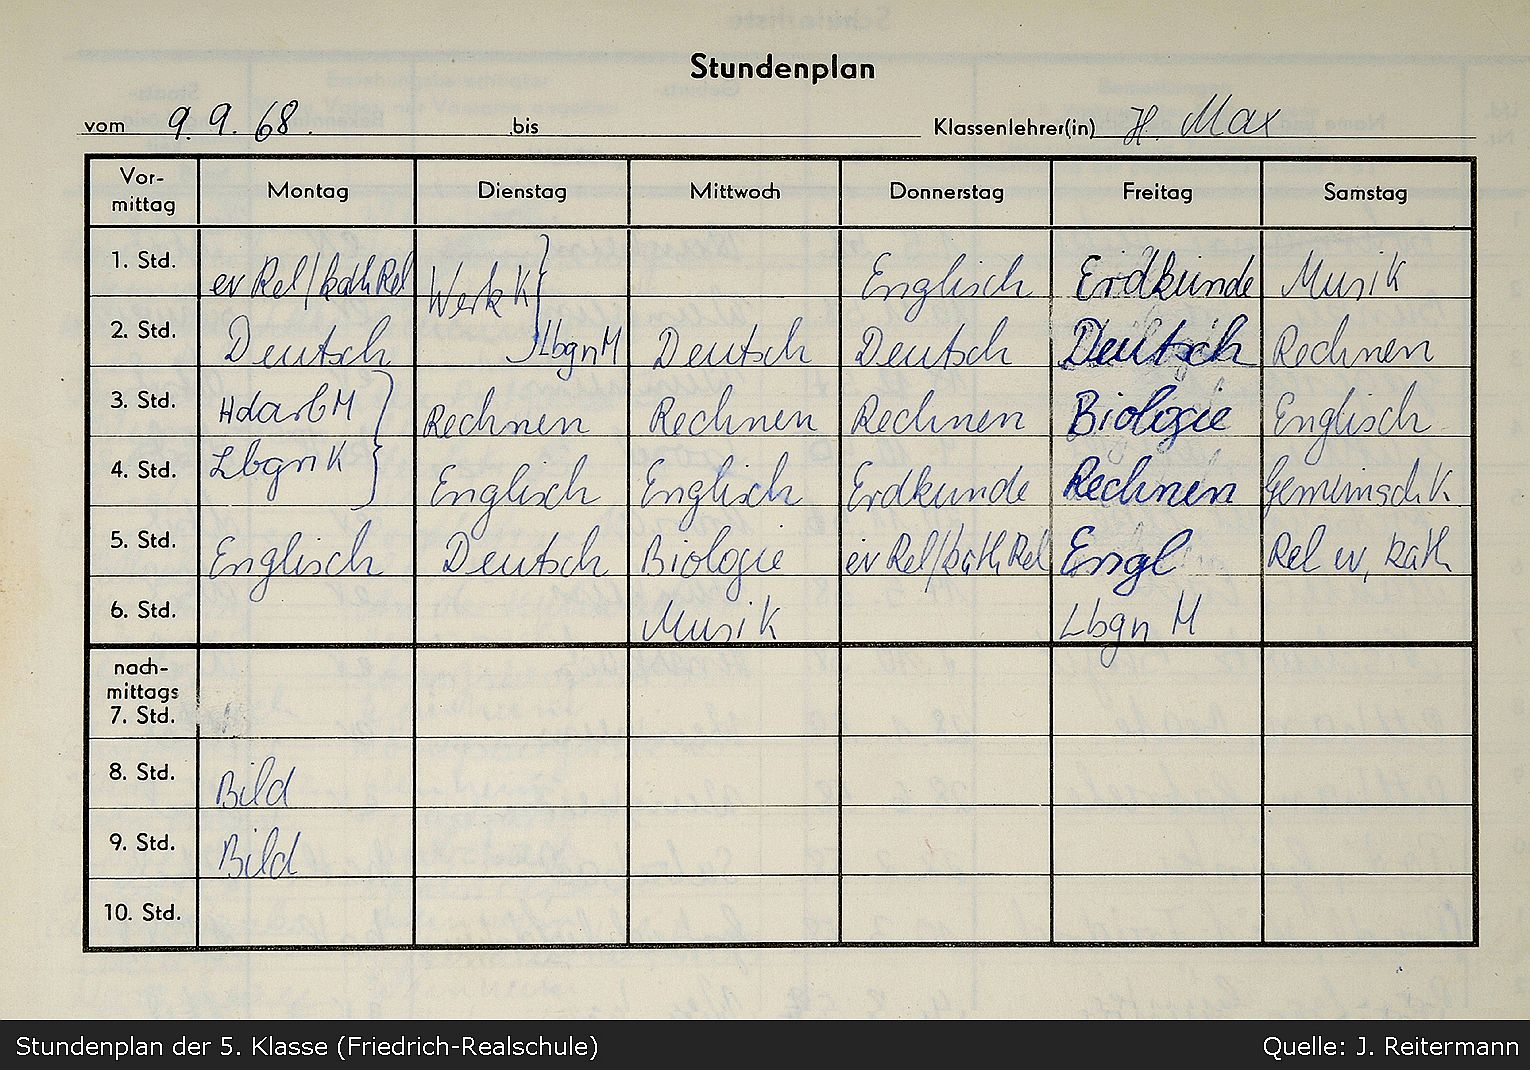 Stundenplan
vom 9. 9. 68. bis Klassenlehrer(in) H. Max
Vor-
mittag Montag Dienstag Mittwoch Donnerstag Freitag Samstag
1. Std. ev Rel/kath Rel Werk K Englisch Erdkunde Musik
2. Std. Deutsch LbgnM Deutsch Deutsch Deutsch Rechnen
3. Std. HdarbM Rechnen Rechnen Rechnen Biologie Englisch
4. Std. Lbgn K Englisch Englisch Erdkunde Rechnen Gemeinsch K
5. Std. Englisch Deutsch Biologie ev Rel/kath Rel Engl Rel ev, kath
6. Std. Musik Lbgn M
nach-
mittags
7. Std.
8. Std. Bild
9. Std. Bild
10. Std.
Stundenplan der 5. Klasse (Friedrich-Realschule) Quelle: J. Reitermann